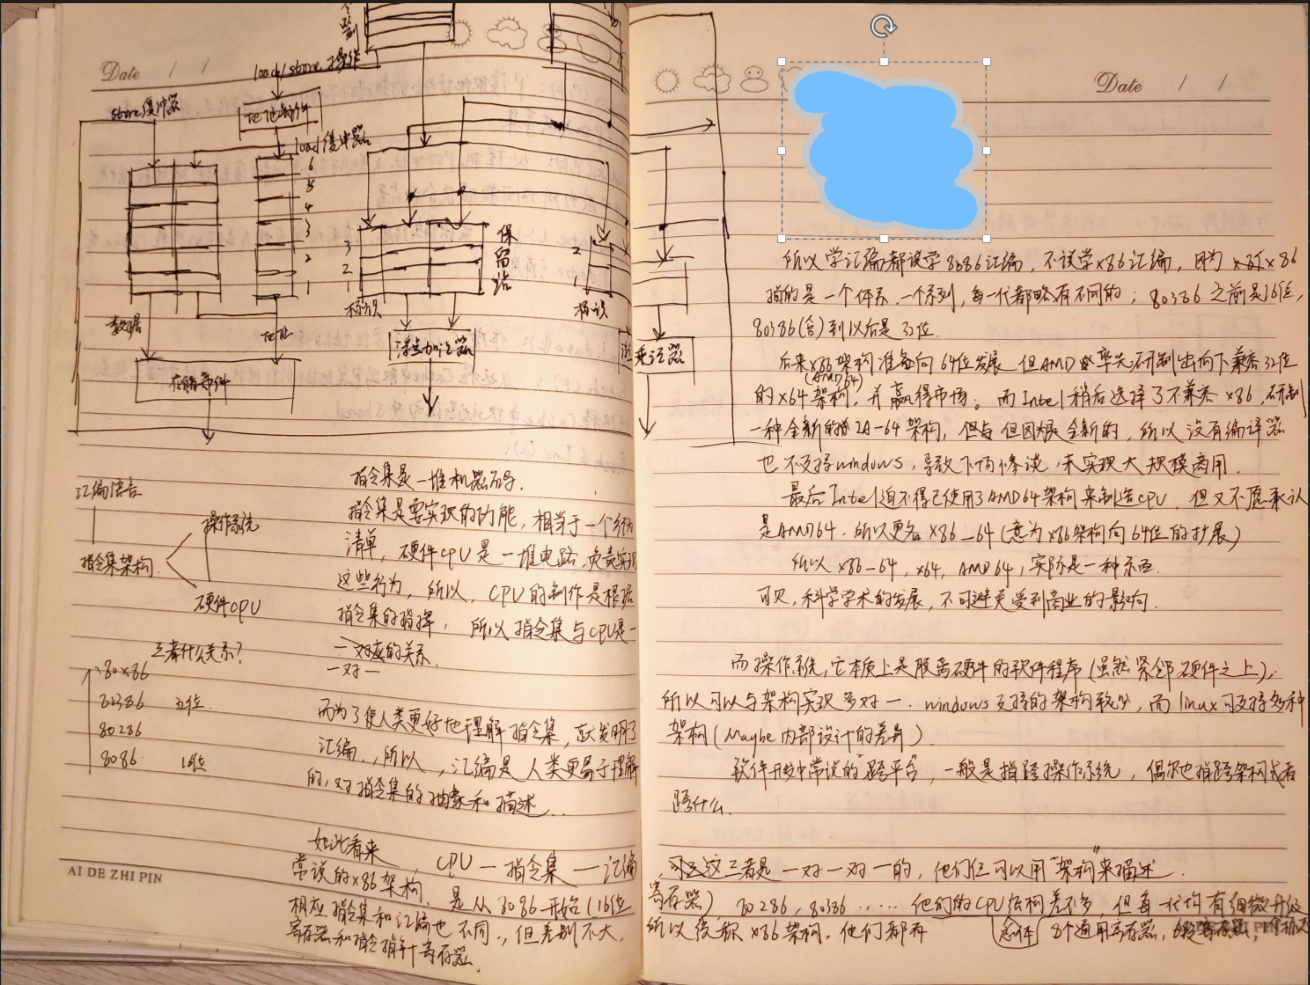 Date / /
load/store 操作
store缓冲器
地址部件
load缓冲器
6
5
4
3
2
1
3
2
1
保留站
2
1
标识
标识
数据
地址
浮点加法器
乘法器
存储部件
汇编语言
操作系统
指令集架构
硬件CPU
三者什么关系?
80x86
80386 32位
80286
8086 16位
指令集是一堆机器码字.
指令集是要实现的功能, 相当于一个行为
清单, 硬件CPU是一堆电路, 负责实现
这些行为, 所以, CPU的制作是根据
指令集的指挥, 所以指令集与CPU是一
一对应的关系.
一对一
而为了使人类更好地理解指令集, 就发明了
汇编., 所以, 汇编是人类更易于理解
的, 对指令集的抽象和描述..
如此看来, CPU — 指令集 — 汇编
常说的x86架构, 是从8086开始(16位
相应指令集和汇编也不同., 但差别不大,
寄存器和指令指针寄存器.
AI DE ZHI PIN
Date / /
所以学汇编都说学8086汇编, 不说学x86汇编, 因为x86
指的是一个体系, 一个系列, 每一代都略有不同的; 80386之前是16位,
80386(含)到以后是32位.
后来x86架构准备向64位发展, 但AMD率先研制出向下兼容32位
的x64架构, (AMD64) 并赢得市场。而Intel稍后选择了不兼容x86, 研制
一种全新的IA-64架构, 但因为是全新的, 所以没有编译器
也不支持windows, 导致下场惨淡, 未实现大规模商用.
最后Intel迫不得已使用了AMD64架构来制造CPU, 但又不愿承认
是AMD64, 所以更名x86_64(意为x86架构向64位的扩展)
所以x86-64, x64, AMD64, 实际是一种东西.
可见, 科学学术的发展, 不可避免受到商业的影响.
而操作系统, 它本质上是脱离硬件的软件程序(虽然紧邻硬件之上),
所以可以与架构实现多对一. windows支持的架构较少, 而linux可支持多种
架构(Maybe内部设计的差异).
软件开发中常说的"跨平台", 一般是指跨操作系统, 偶尔也指跨架构或者
跨什么.
这三者是一对一对一的, 他们仨可以用"架构"来描述.
寄存器) 80286, 80386 …… 他们的CPU结构差不多, 但每一代均有细微升级
所以统称x86架构. 他们都有 8个通用寄存器,